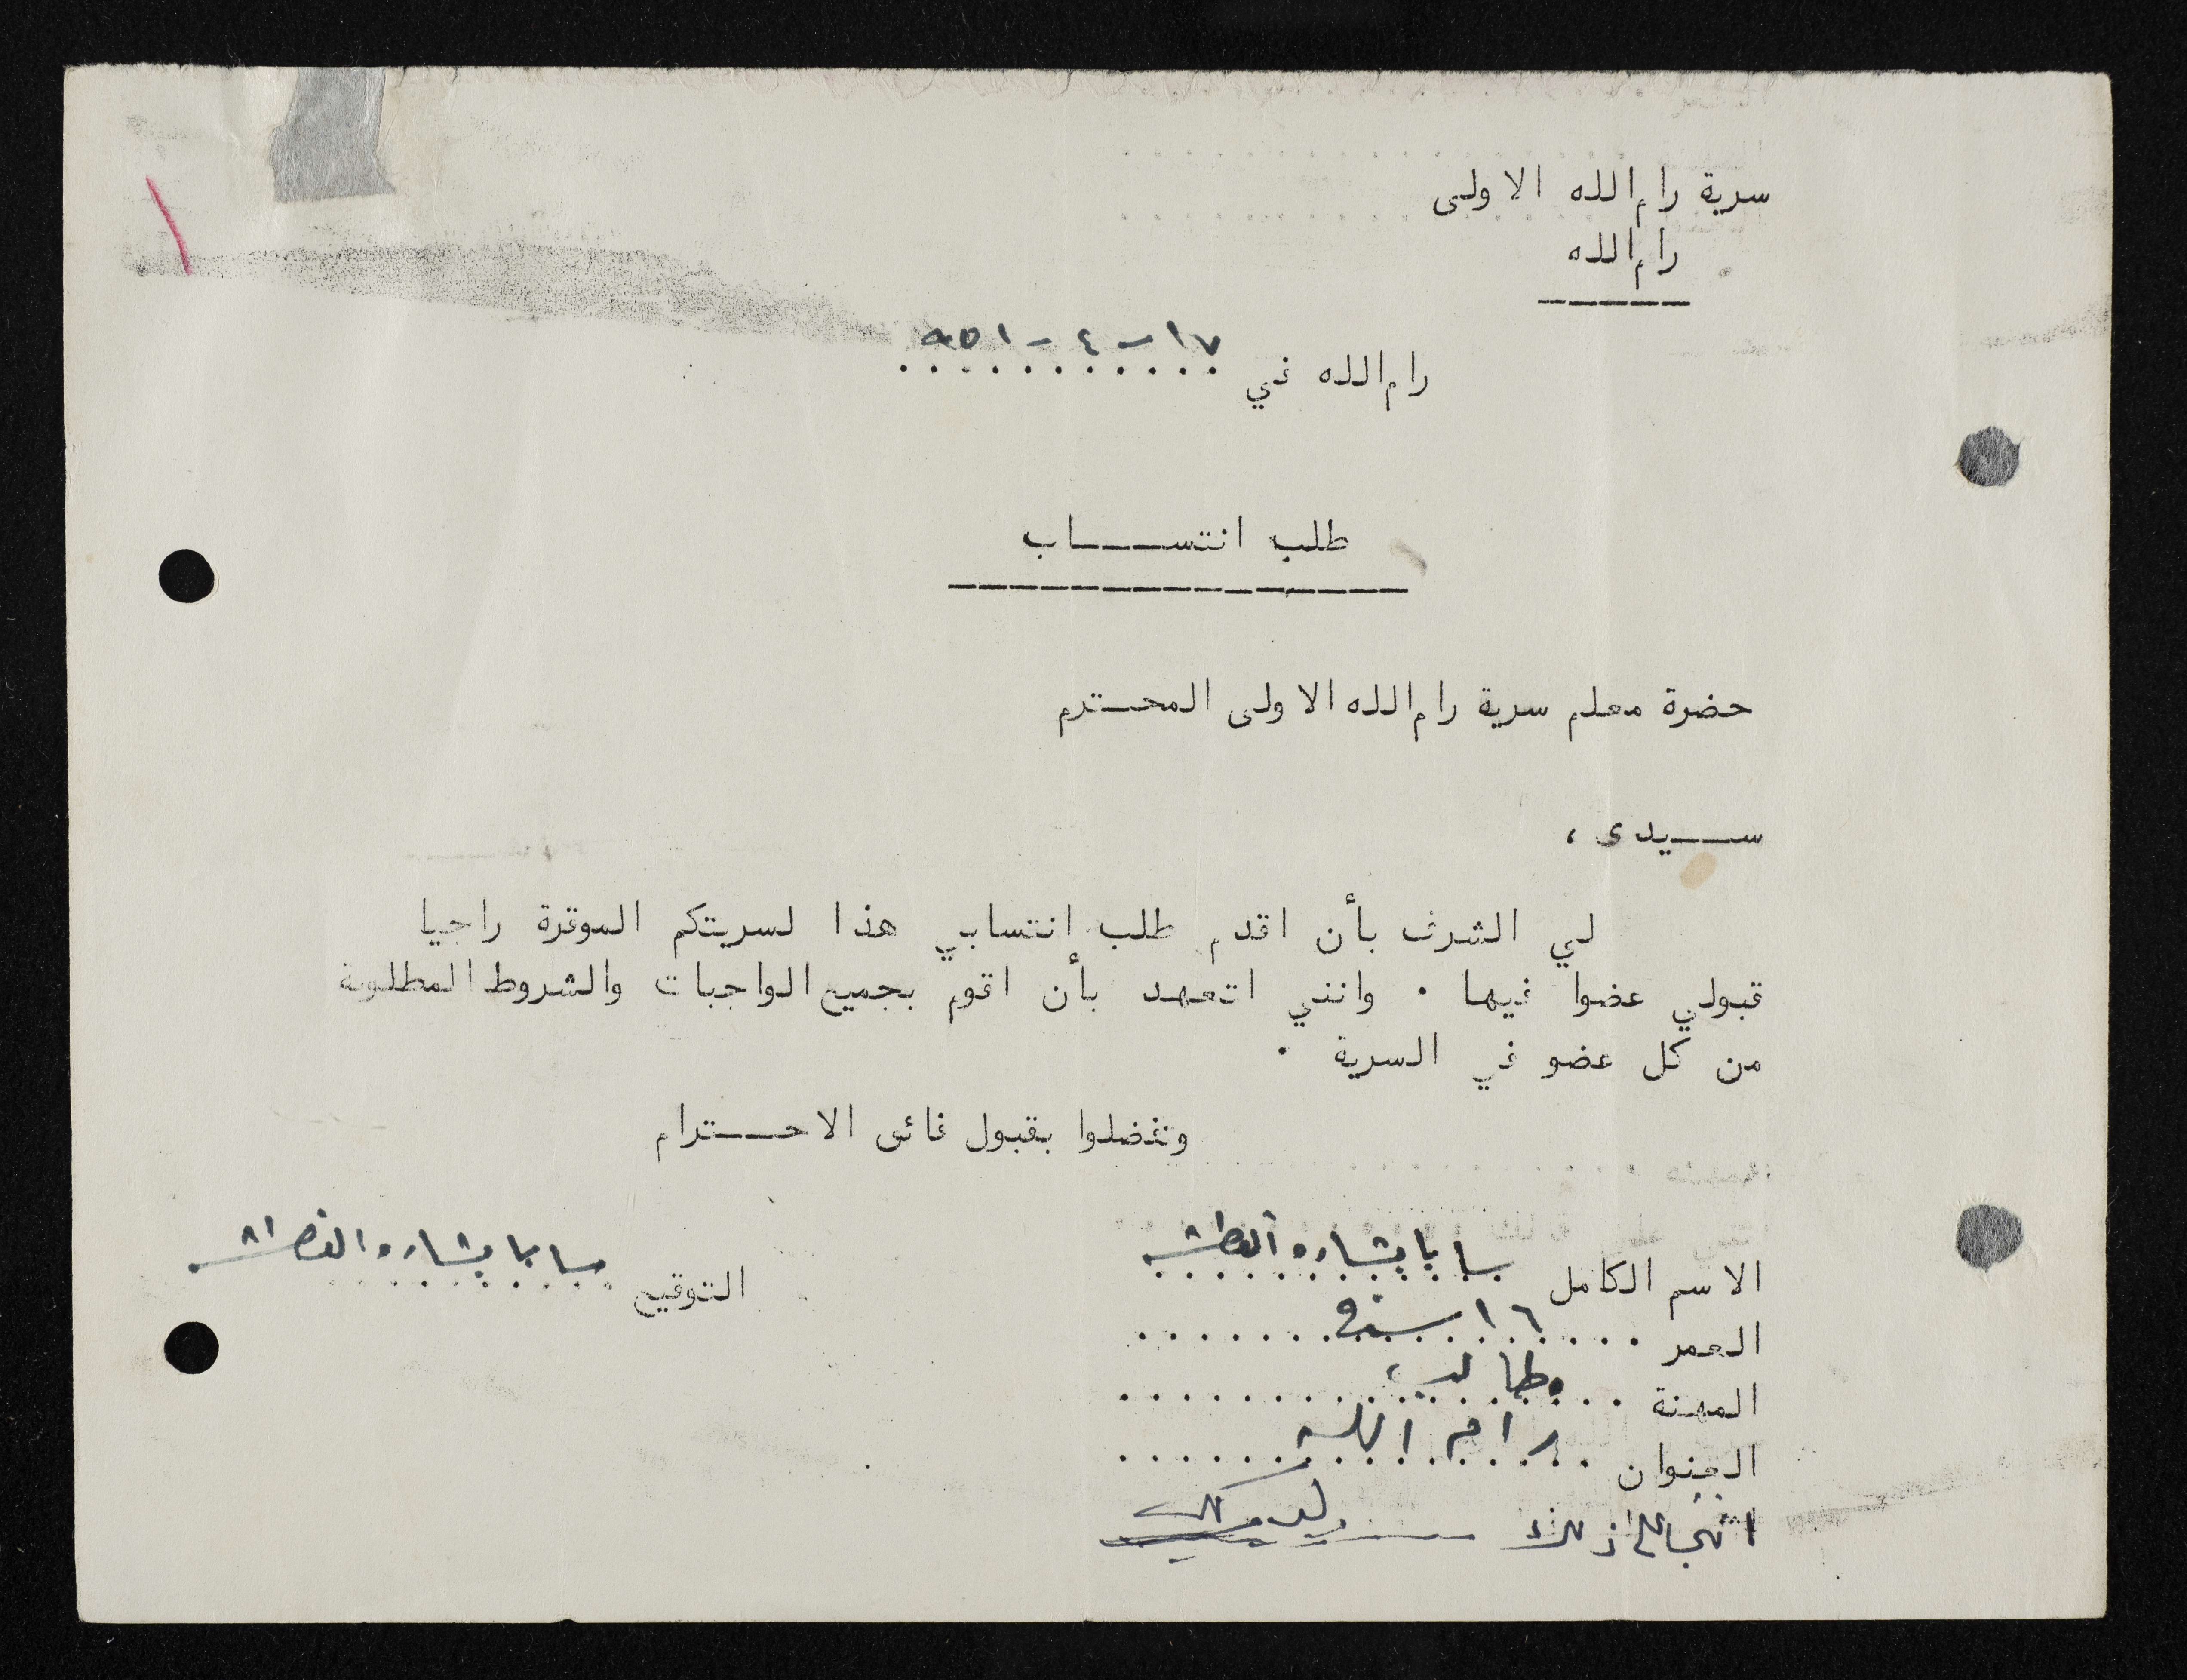 سرية رام الله الاولى
رام الله
رام الله في ١٧-٤-٩٥١
طلب انتساب
حضرة معلم سرية رام الله الاولى المحترم
سيدى ،
لي الشرف بأن اقدم طلب انتسابي هذا لسريتكم الموقرة راجيا
قبولي عضوا فيها ٠ وانني اتعهد بأن اقوم بجميع الواجبات والشروط المطلوبة
من كل عضو في السرية ٠
وتفضلوا بقبول فائق الاحترام
الاسم الكامل سابا بشاره
التوقيع سابا بشاره
العمر ١٦ سنة
المهنة طالب
العنوان رام الله